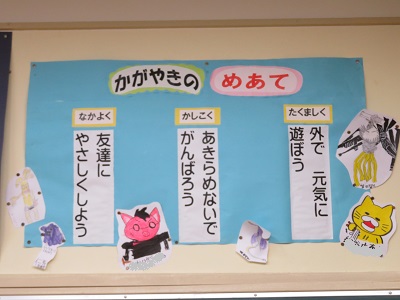 かがやきの めあて
たくましく
外で 元気に
遊ぼう
かしこく
あきらめないで
がんばろう
なかよく
友達に
やさしくしよう